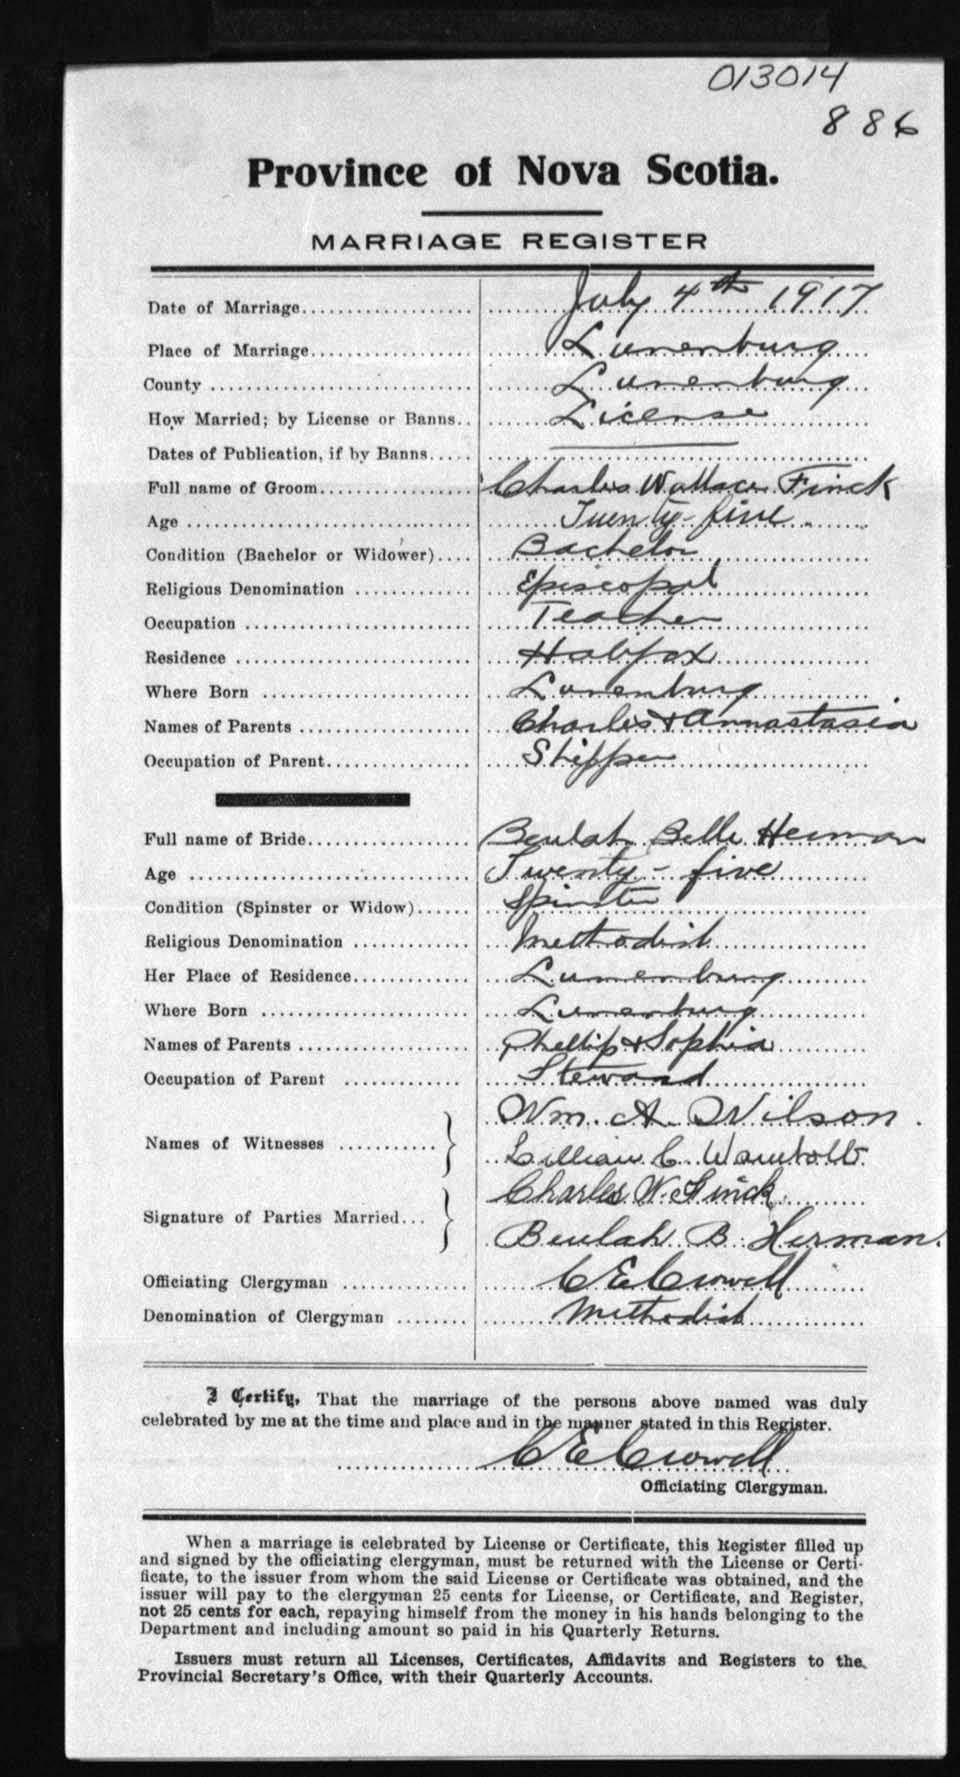 013014
886
Province of Nova Scotia.
MARRIAGE REGISTER
Date of Marriage.................... July 4th 1917
Place of Marriage.................. Lunenburg
County ............................. Lunenburg
How Married; by License or Banns.. License
Dates of Publication, if by Banns.....
Full name of Groom.................. Charles Wallace Finck
Age ................................ Twenty-five
Condition (Bachelor or Widower).... Bachelor
Religious Denomination ............. Episcopal
Occupation ......................... Teacher
Residence .......................... Halifax
Where Born ......................... Lunenburg
Names of Parents ................... Charles & Annastasia
Occupation of Parent................ Shipper
Full name of Bride.................. Beulah Belle Herman
Age ................................ Twenty-five
Condition (Spinster or Widow)...... Spinster
Religious Denomination ............. Methodist
Her Place of Residence............. Lunenburg
Where Born ......................... Lunenburg
Names of Parents ................... Phillip & Sophia
Occupation of Parent ............... Steward
Names of Witnesses ........... } Wm. A. Wilson.
Lillian C. Wambolt.
Signature of Parties Married... } Charles W. Finck
Beulah B. Herman.
Officiating Clergyman .............. C E Crowell
Denomination of Clergyman ........ Methodist
I Certify, That the marriage of the persons above named was duly
celebrated by me at the time and place and in the manner stated in this Register.
C E Crowell
Officiating Clergyman.
When a marriage is celebrated by License or Certificate, this Register filled up
and signed by the officiating clergyman, must be returned with the License or Certi-
ficate, to the issuer from whom the said License or Certificate was obtained, and the
issuer will pay to the clergyman 25 cents for License, or Certificate, and Register,
not 25 cents for each, repaying himself from the money in his hands belonging to the
Department and including amount so paid in his Quarterly Returns.
Issuers must return all Licenses, Certificates, Affidavits and Registers to the
Provincial Secretary's Office, with their Quarterly Accounts.